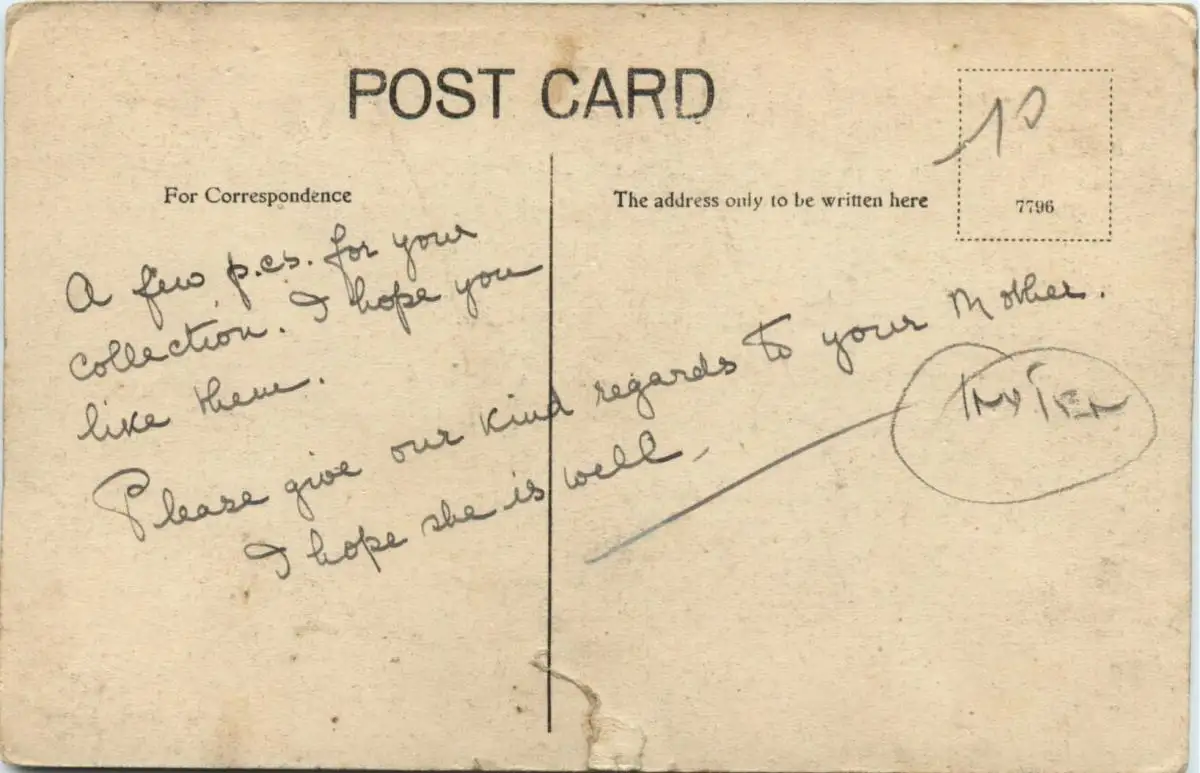 POST CARD
10
7796
For Correspondence
The address only to be written here
A few p.cs. for your
collection. I hope you
like them.
Please give our kind regards to your Mother.
I hope she is well.